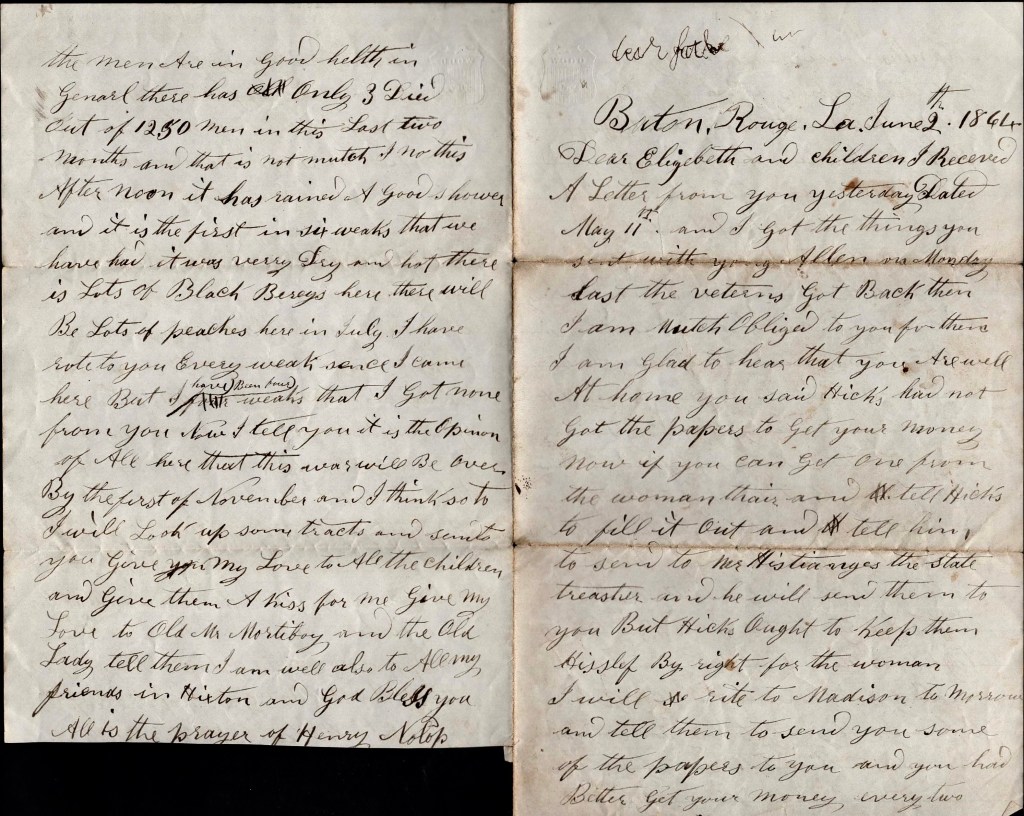 dear fothe
Brton, Rouge, La, June 2th. 1864
Dear Elizebeth and children I Receved
A Letter from you yesterday Dated
May 11th. and I Got the things you
sent with yong Allen on Monday
Last the veterns Got Back then
I am Mutch Obliged to you for them
I am Glad to hear that you Are well
At home you said Hicks had not
Got the papers to Get your money
Now if you can Get One from
the woman thair and tell Hicks
to fill it Out and tell him
to send to Mr Histianges the state
treasher and he will send them to
you But Hicks Ought to Keep them
Hisslef By right for the woman
I will rite to Madison to Morrow
and tell them to send you some
of the papers to you and you had
Better Get your money every two
the men Are in Good helth in
Genarl there has Only 3 Died
Out of 1250 Men in this Last two
Months and that is not mutch I no this
After noon it has rained A Good shower
and it is the first in six weaks that we
have had it was verry Dry and hot there
is Lots Of Black Bereys here there will
Be Lots of peaches here in July I have
rote to you Every weak sence I came
here But I have Been four weaks that I Got none
from you Now I tell you it is the Opinon
of All here that this war will Be Over
By the first of November and I think so to
I will Look up som tracts and send to
you Give my Love to All the children
and Give them A Kiss for me Give my
Love to Old Mr Mortiboy and the Old
Lady tell them I am well also to All my
friends in Hixton and God Bless you
All is the prayer of Henry Nolop